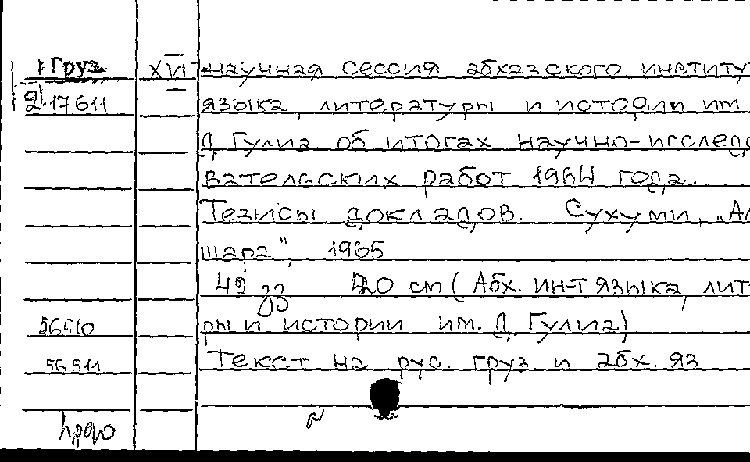 Груз XVI научная сессия абхазского институ
2 17611 языка, литературы и истории им.
Д. Гулиа об итогах научно-исследо
вательских работ 1964 года.
Тезисы докладов. Сухуми, „Ал
шара", 1965
49 გვ 20 см (Абх. ин-т языка, лит
56510 ры и истории им. Д. Гулиа)
56511 Текст на рус. груз. и абх. яз